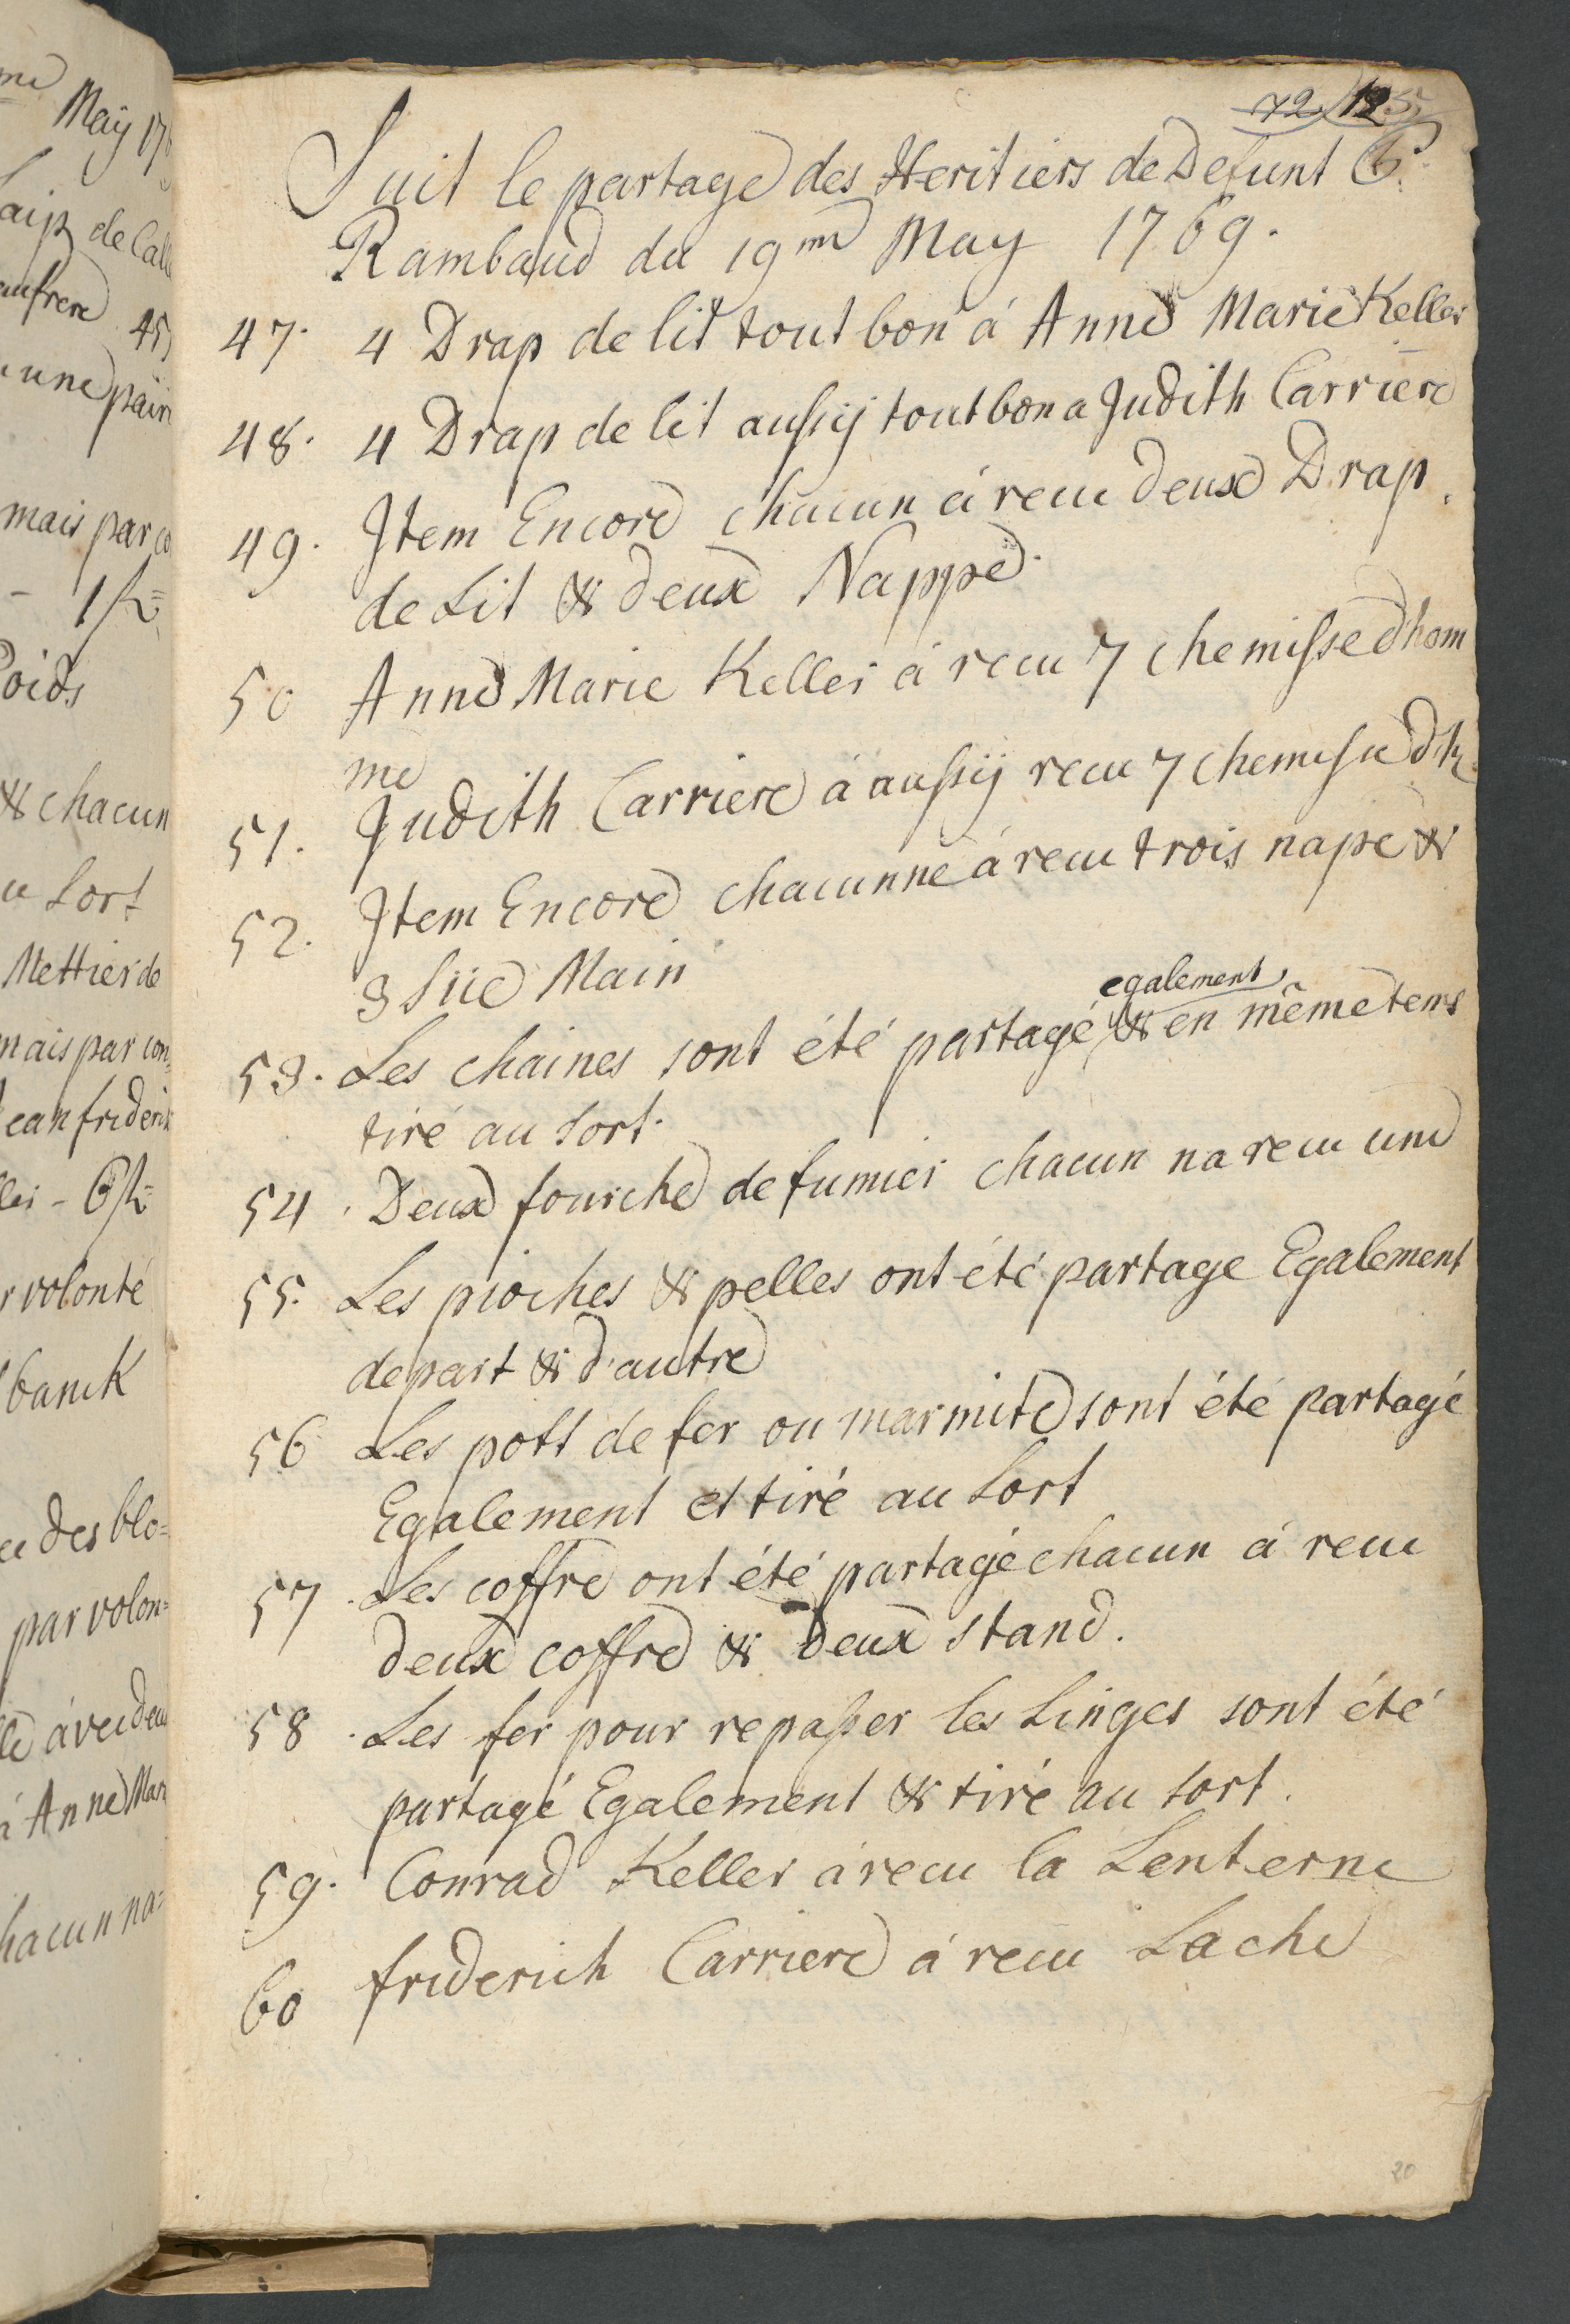 me
May 176
aip de Calle
eaufrere 45
une pair
mais par co
- 1 fl=
Poids
& chacun
u Sort
Mettier de
mais par con=
Jean friderich
ller - 6 fl=
r volonté
banck
des blo=
par volon=
avec deux
à Anne Mari
hacun na=
72
Suit le partage des Heritiers de Defunt P.
Rambaud du 19me May 1769.
47. 4 Drap de lit tout bon á Anne Marie Keller
48. 4 Drap de lit aussij tout bon a Judith Carriere
49. Item Encore chacun á recu deux Drap
de Lit & deux Nappe.
50 Anne Marie Keller á recu 7 chemisse d hom
me
51. Judith Carriere á aussij recu 7 chemisse dh.
52. Item Encore chacunne á recu trois nape &
3 Süe Main
également
53. Les chaines sont été partagé & en même tems
tiré au Sort.
54. Deux fourche de fumier chacun na recu une
55. Les pioches & pelles ont été partage Egalement
de part & d'autre
56 Les pott de fer ou marmite sont été partagé
Egalement et tiré au Sort
57. Les coffre ont été partagé chacun á recu
deux coffre & deux stand.
58. Les fer pour repasser les Linges sont été
partagé Egalement & tiré au sort.
59. Conrad Keller á recu la Lenterne
60 friderich Carriere á recu Lache
20